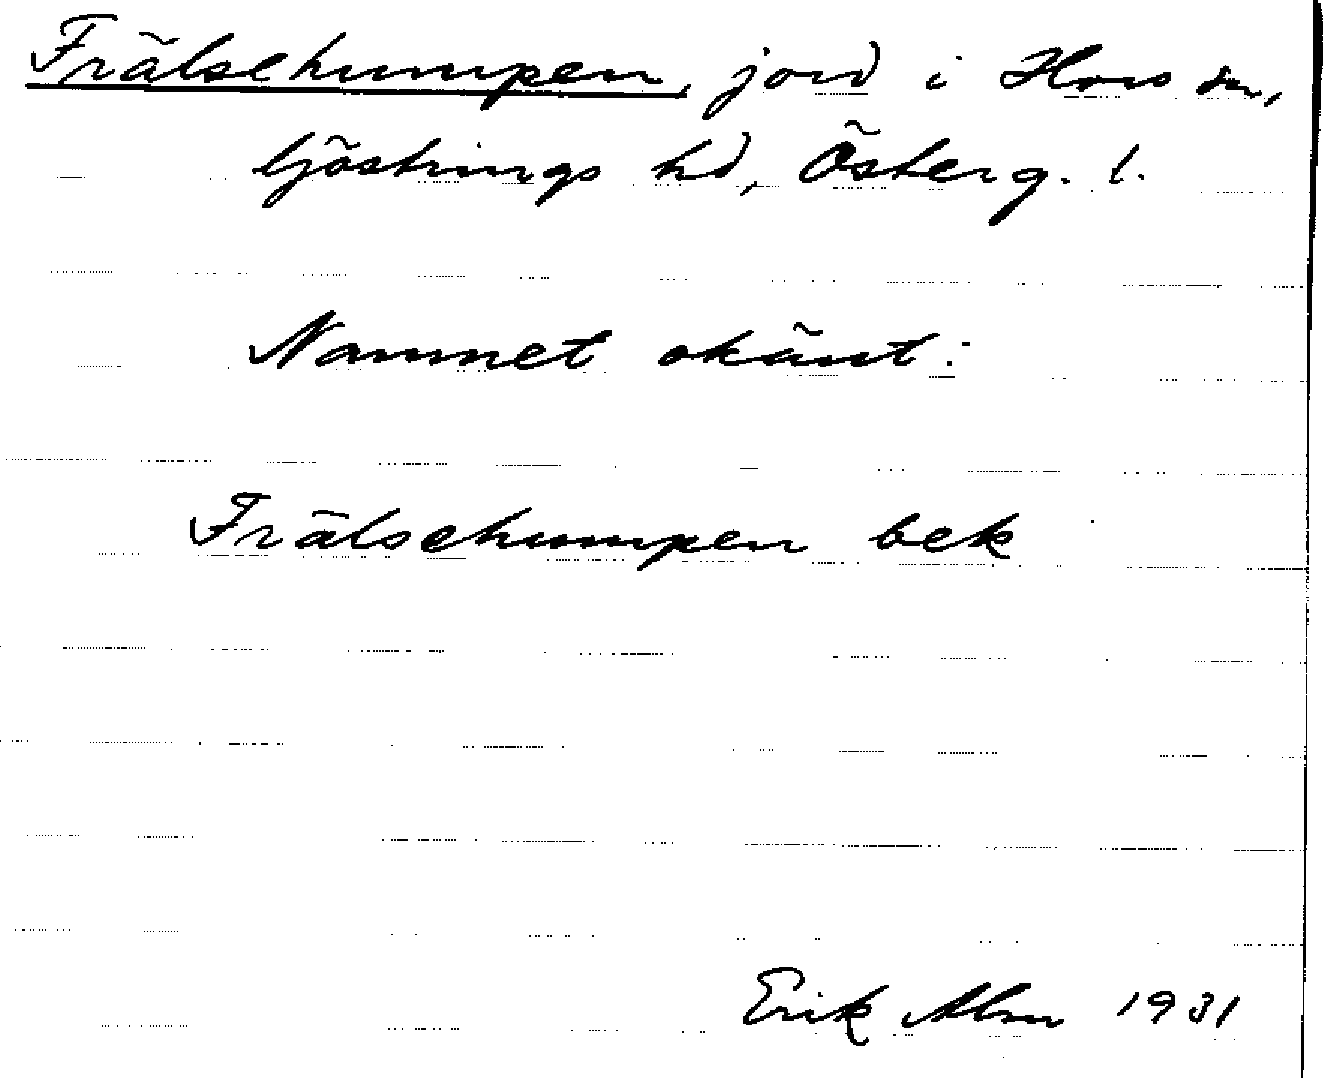 Frälsehumpen, jord i Hovs sn,
Göstrings hd, Österg. l.
Namnet okänt.
Frälsehumpen bek
Erik Alm 1931